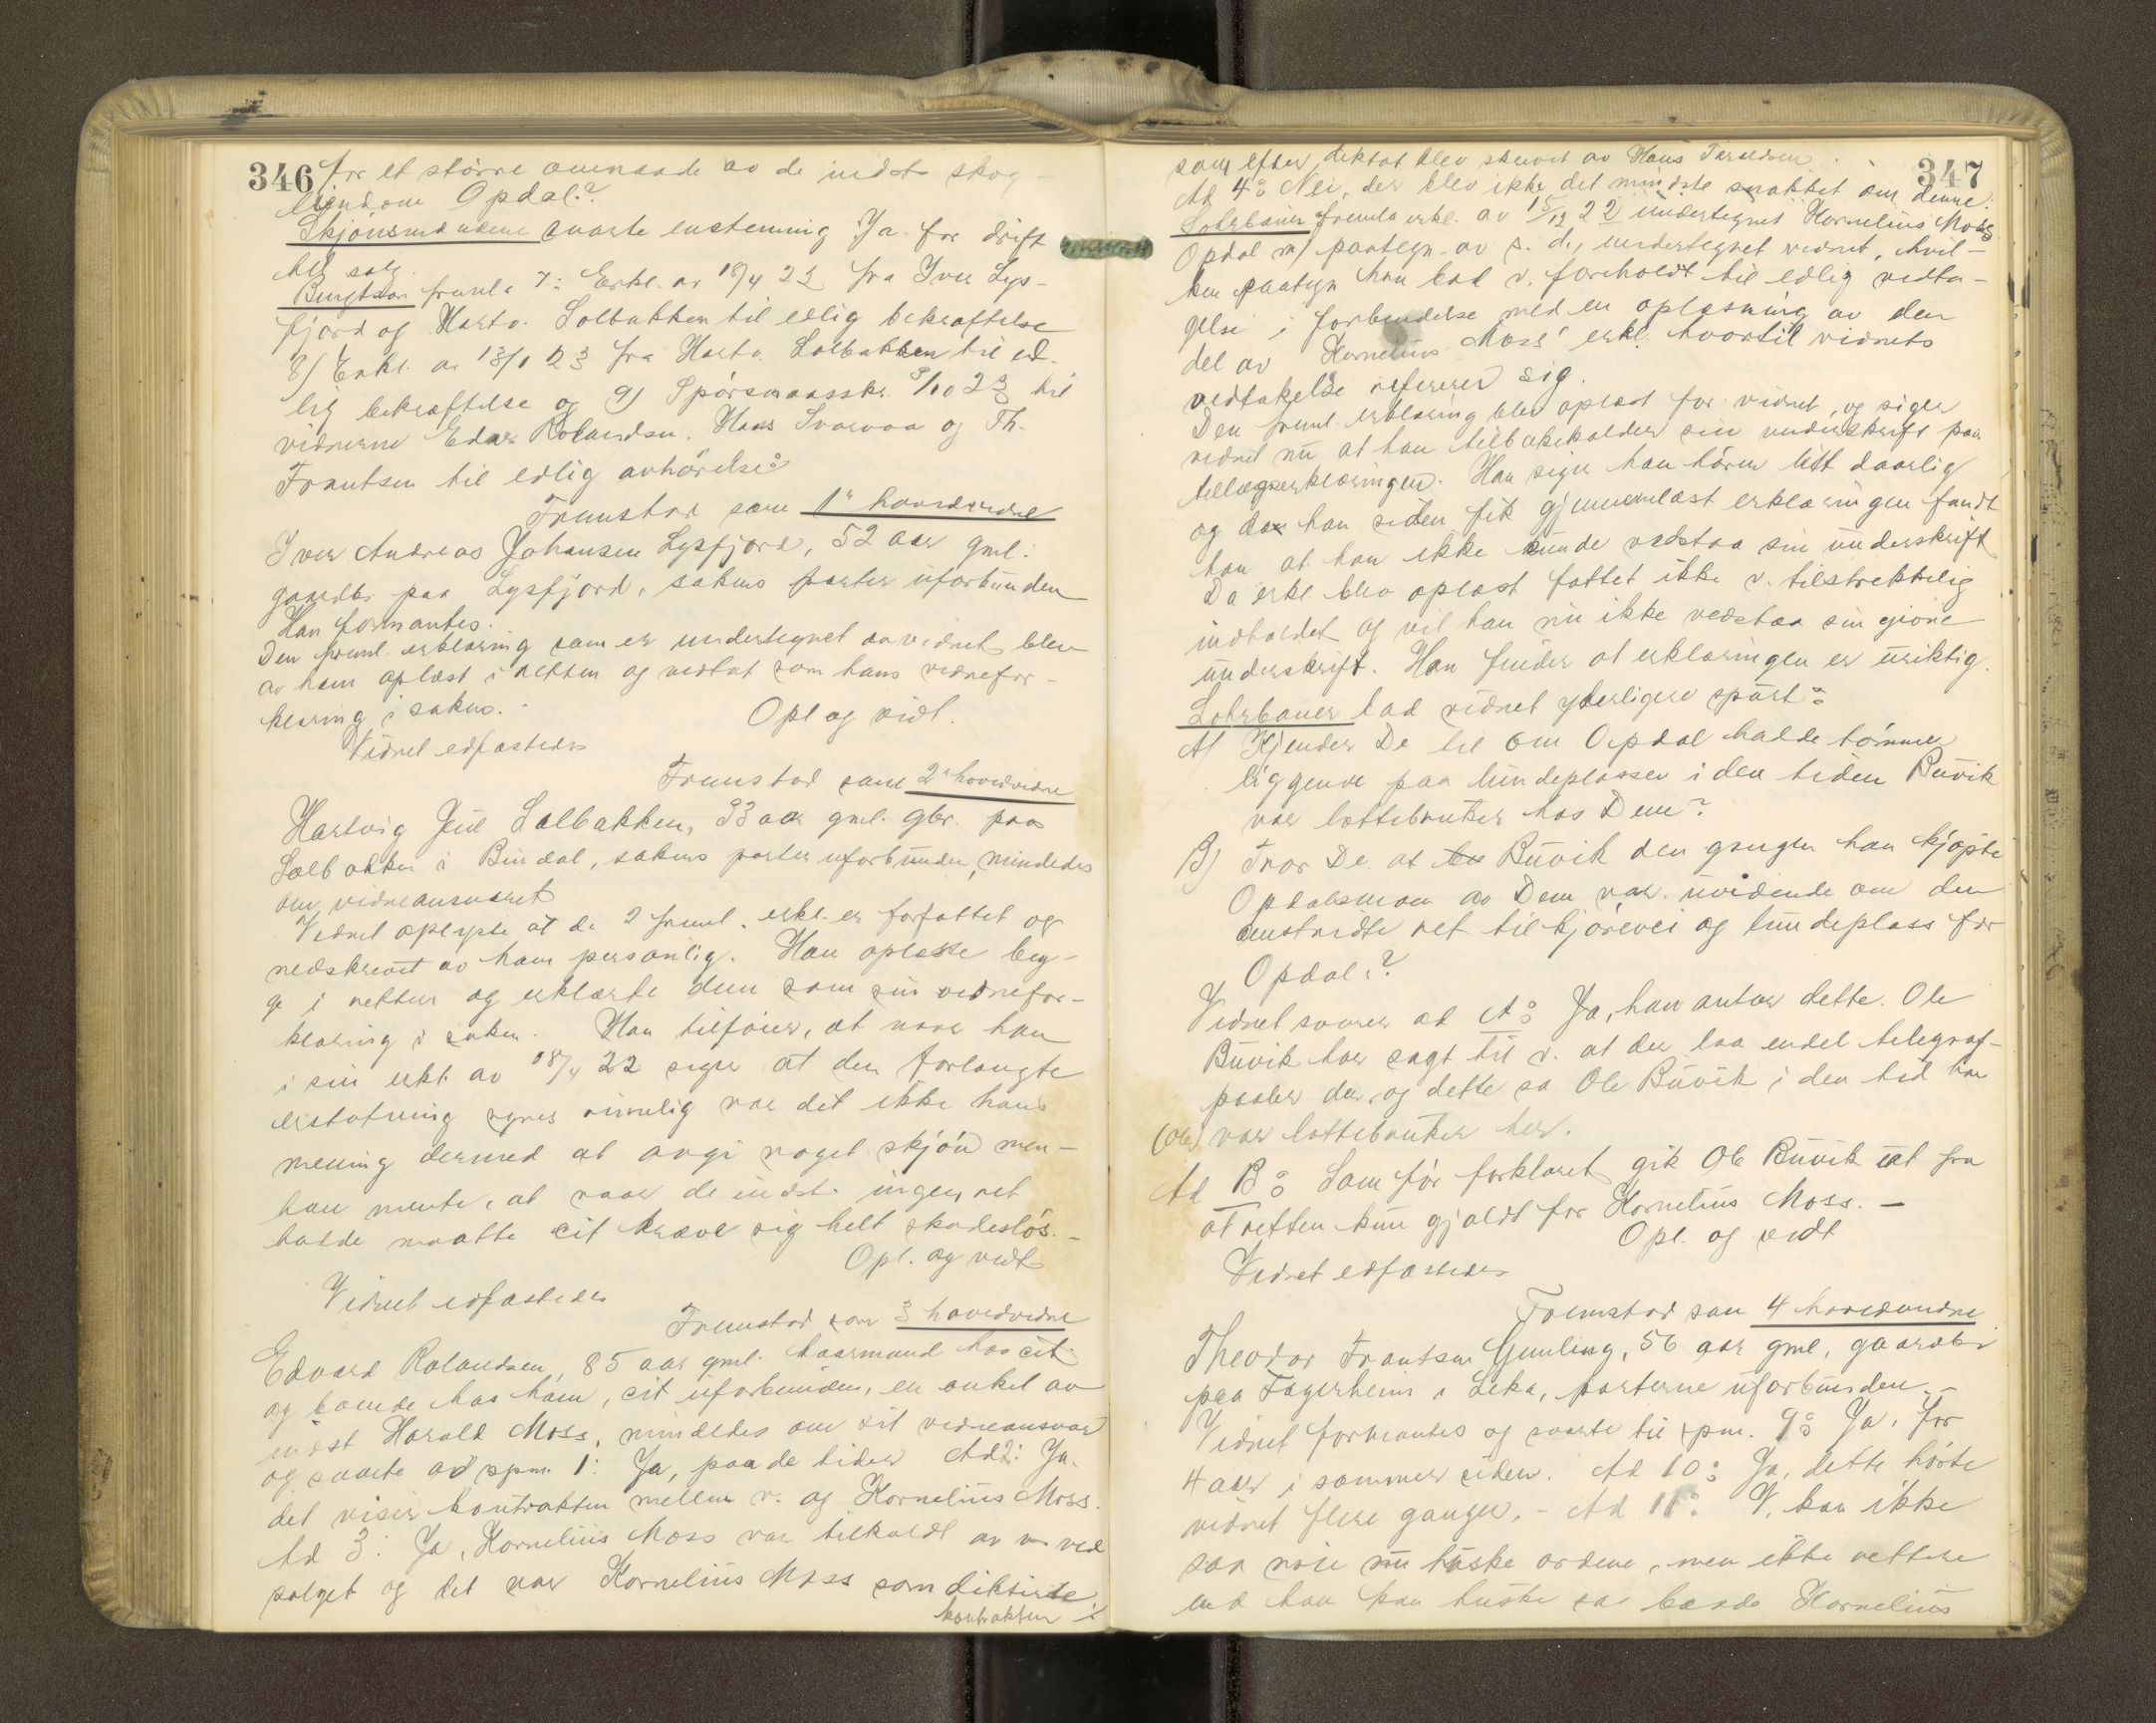 346
for et större omraade av de indst. skog-
eiendom Opdal?
Skjönsmændene svarte enstemmig Ja. for drift
til salg.
Bengtson fremla 7: Erkl. av 18/4 22 fra Iver Lys-
fjord og Hartv. Solbakken til edlig bekræftelse
8) Erkl. av 13/1 23 fra Hartv. Solbakken til ed-
lig bekræftelse og 9) Spörsmaalsskr. 9/10 23 til
vidnerne Edvar Rolandsen, Hans Svarvaa og Th.
Frantsen til edlig avhörelse:
Fremstod som 1ste hovedvidne
Iver Andreas Johansen Lysfjord, 52 aar gml.
gaardbr paa Lysfjord, sakens parter uforbunden
Han formantes.
Den freml. erklæring som er undertegnet av vidnet blev
av ham oplæst i retten og vedtat som hans vidnefor-
klaring i saken.
Opl og vedt.
Vidnet edfæstedes
Fremstod som 2 hovedvidne
Hartvig Juul Solbakken, 33 aar gml. gbr. paa
Solbakken i Bindal, sakens parter uforbunden, mindedes
om vidneansvaret
Vidnet oplyste at de 2 freml. erkl. er forfattet og
nedskrevet av ham personlig. Han oplæste beg-
ge i retten og erklærte dem som sin vidnefor-
klaring i saken. Han tilföier, at naar han
i sin erkl. av 18/4 22 siger at den forlangte
erstatning synes rimelig var det ikke hans
mening dermed at avgi noget skjön men
han mente, at naar de indst. ingen ret
hadde maatte cit kræve sig helt skadeslös. -
Opl. og vedt
Vidnet edfæstedes
Fremstod som 3 hovedvidne
Edvard Rolandsen, 85 aar gml. kaarmand hos cit.
og boende hos ham, cit uforbunden, en onkel av
indst Harald Moss, mindedes om sit vidneansvar
og svarte ad spm. 1: Ja, paa de tider Ad 2: Ja.
det viser kontrakten mellem v. og Kornelius Moss.
Ad 3: Ja, Kornelius Moss var tilkaldt av v. ved
salget og det var Kornelius Moss som dikterte
kontrakten
347
som efter diktat blev skrevet av Hans
Ad 4: Nei, der blev ikke det mindste snakket om denne.
Lohrbauer fremla erkl. av 15/12 22 undertegnet Kornelius Moss
Opdal m/ paategn. av s. d., undertegnet vidnet, hvil-
ken paategn han bad v. foreholdt til edlig vedta-
gelse i forbindelse med en oplæsning av den
del av Kornelius Moss' erkl. hvortil vidnets
vedtakelse refererer sig.
Den freml erklæring blev oplæst for vidnet, og siger
vidnet nu at han tilbakekalder sin underskrift paa
tillægserklæringen. Han siger han hörer litt daarlig
og da han siden fik gjennemlæst erklæringen fandt
han at han ikke kunde vedstaa sin underskrift
Da erkl blev oplæst fattet ikke v. tilstrekkelig
indholdet og vil han nu ikke vedstaa sin givne
underskrift. Han finder at erklæringen er uriktig.
Lohrbauer bad vidnet yderligere spurt:
A) Kjender De til om Opdal hadde tömmer
liggende paa lundeplassen i den tiden Buvik
var lottebruker hos Dem?
B) Tror De at Buvik den gangen han kjöpte
Opdalsmoen av Dem var uvidende om den
omstridte ret til kjörevei og lundeplass for
Opdal.?
Vidnet svarer ad A: Ja, han antar dette. Ole
Buvik har sagt til v. at der laa endel telegraf-
paaler der, og dette sa Ole Buvik i den tid han
(Ole) var lottebruker her.
Ad B: Som för forklaret gik Ole Buvik ut fra
at retten kun gjaldt for Kornelius Moss. -
Opl. og vedt
Vidnet edfæstedes
Fremstod som 4 hovedvidne
Theodor Frantsen Gunling, 56 aar gml, gaardbr
paa Fagerheim i Leka, parterne uforbunden. -
Vidnet formantes og svarte til spm. 9: Ja, for
4 aar i sommer siden. Ad 10: Ja, dette hörte
vidnet flere ganger. - Ad 11: V. kan ikke
saa nöie nu huske ordene, men ikke rettere
end han kan huske sa baade Kornelius